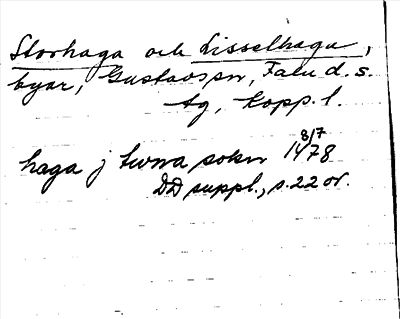 Storhaga och Lisselhaga,
byar, Gustavs sn, Falu d. s.
tg, Kopp. l.
haga j tuna sokn 8/7 1478
DD suppl., s. 22 or.